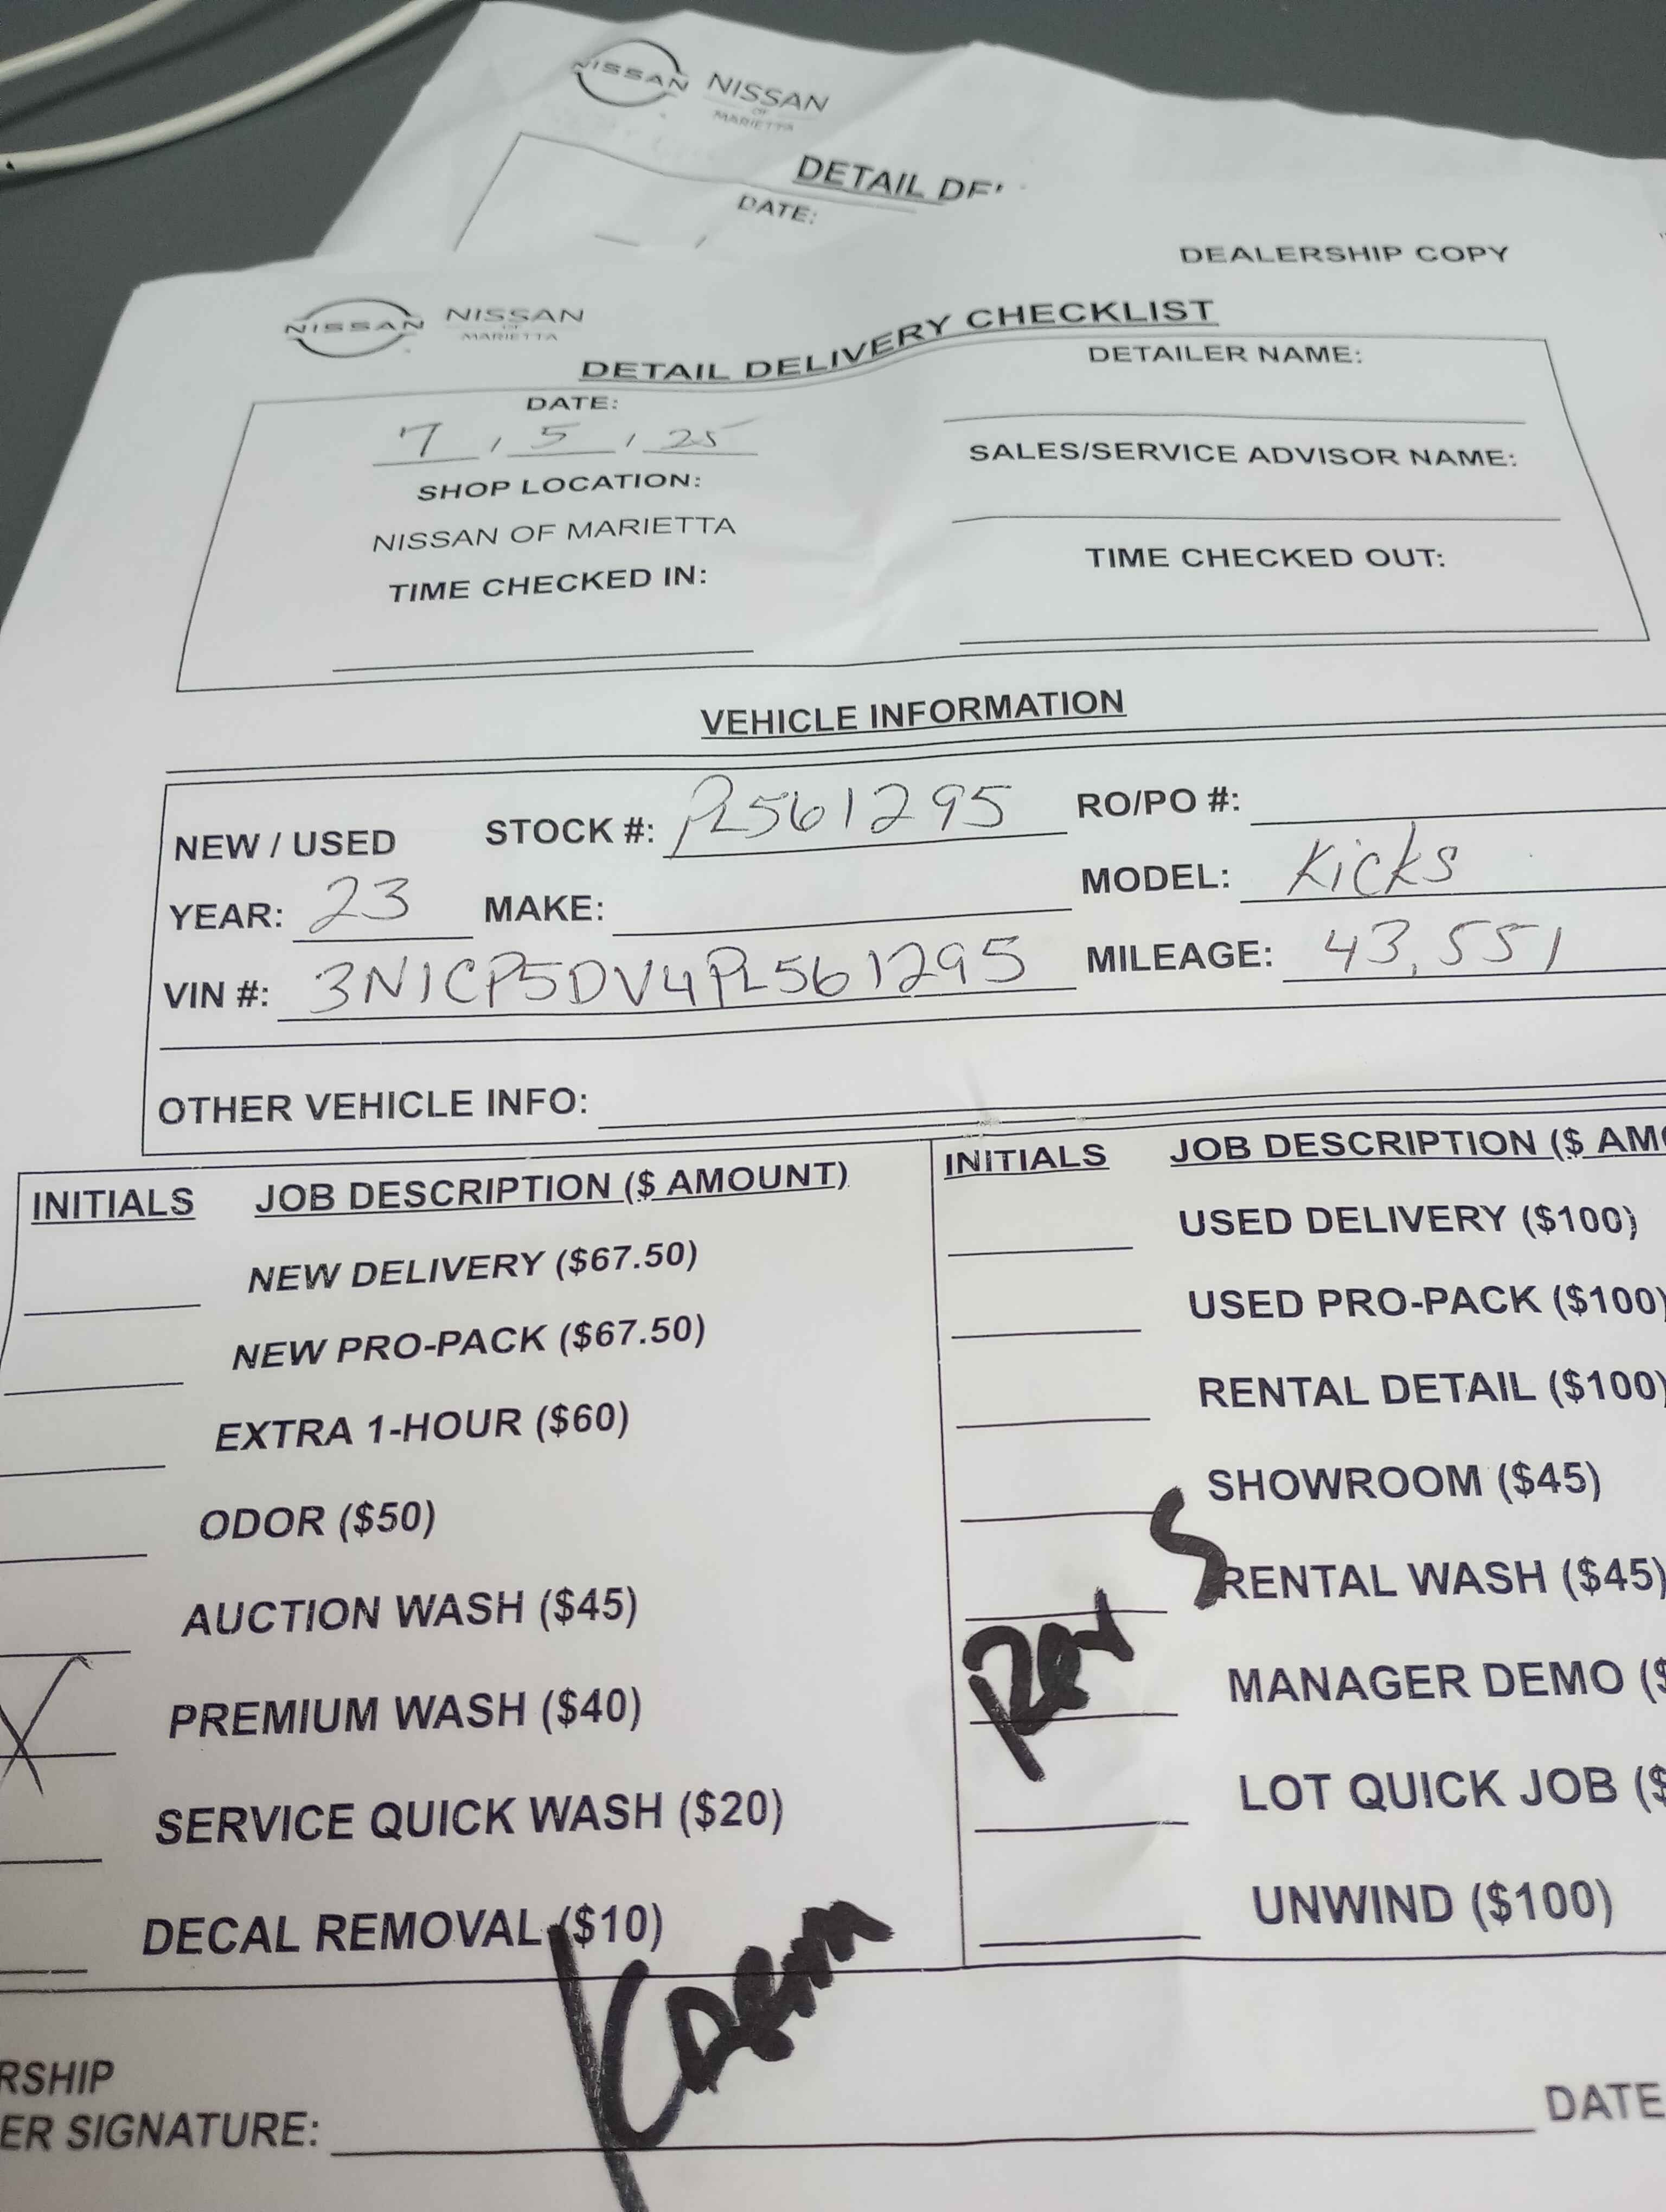 NISSAN NISSAN
OF
MARIETTA
DETAIL DE
DATE:
DEALERSHIP COPY
NISSAN NISSAN
OF
MARIETTA
DETAIL DELIVERY CHECKLIST
DATE:
7 / 5 / 25
SHOP LOCATION:
NISSAN OF MARIETTA
TIME CHECKED IN:
DETAILER NAME:
SALES/SERVICE ADVISOR NAME:
TIME CHECKED OUT:
VEHICLE INFORMATION
NEW / USED STOCK #: PL561295 RO/PO #:
YEAR: 23 MAKE: MODEL: Kicks
VIN #: 3N1CP5DV4PL561295 MILEAGE: 43,551
OTHER VEHICLE INFO:
INITIALS JOB DESCRIPTION ($ AMOUNT)
NEW DELIVERY ($67.50)
NEW PRO-PACK ($67.50)
EXTRA 1-HOUR ($60)
ODOR ($50)
AUCTION WASH ($45)
X PREMIUM WASH ($40)
SERVICE QUICK WASH ($20)
DECAL REMOVAL ($10)
INITIALS JOB DESCRIPTION ($ AM
USED DELIVERY ($100)
USED PRO-PACK ($100)
RENTAL DETAIL ($100)
SHOWROOM ($45)
RENTAL WASH ($45)
MANAGER DEMO ($
LOT QUICK JOB ($
UNWIND ($100)
RSHIP
ER SIGNATURE:
DATE